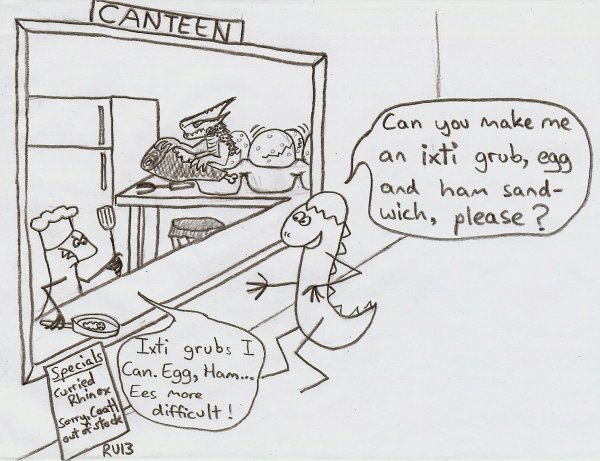 CANTEEN
Can you make me
an ixti grub, egg
and ham sand-
wich, please?
Ixti grubs I
Can. Egg, Ham...
Ees more
difficult!
Specials
Curried
Rhinox
Sorry, Coatl
out of stock
RU13